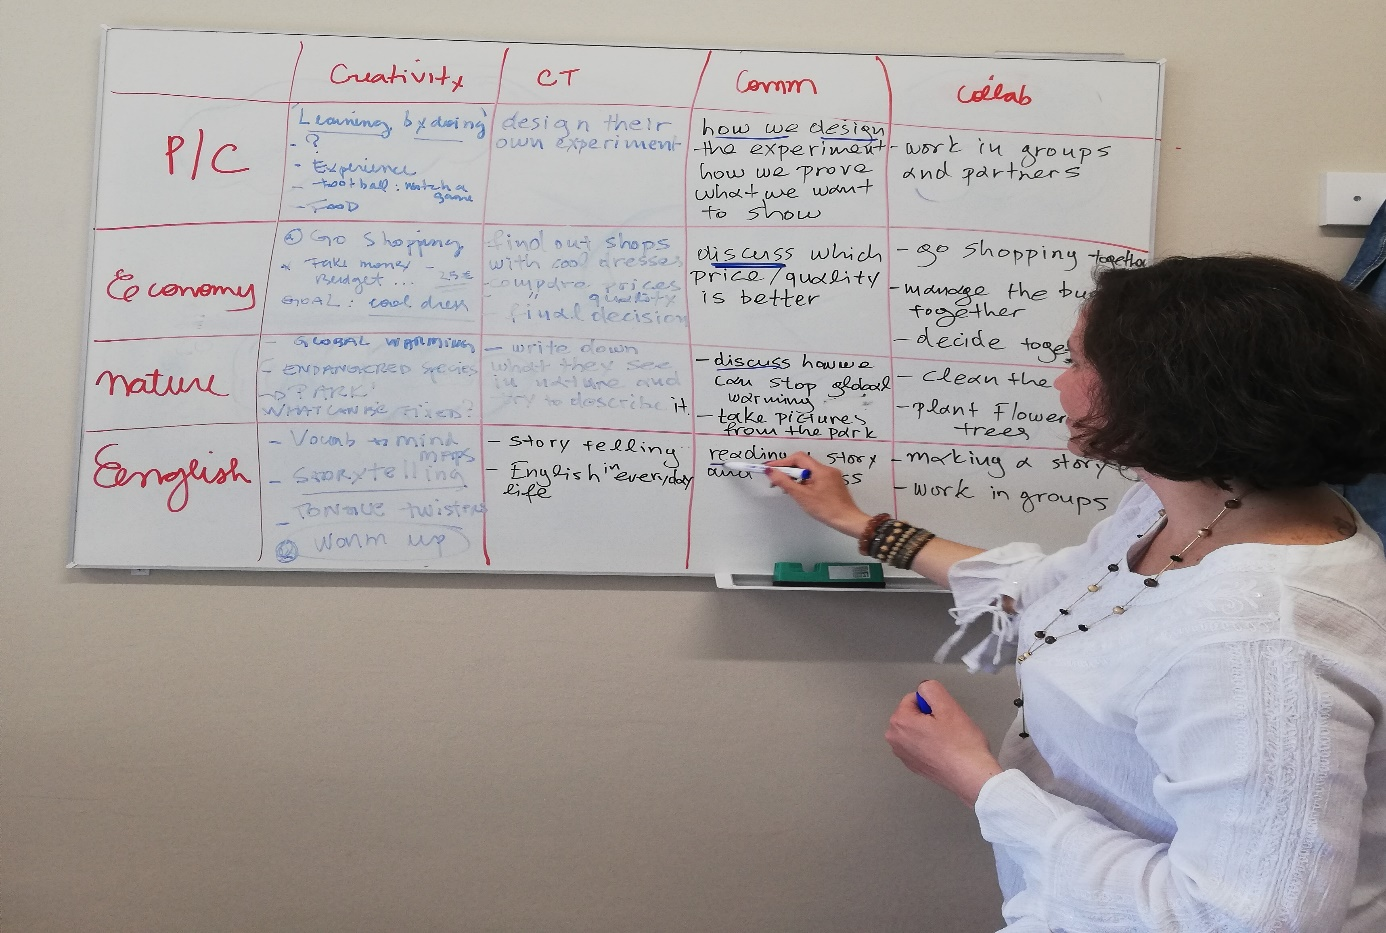 Creativity CT Comm Collab
P/C
Learning by doing
- ?
- Experience
- Football: watch a
game
- FOOD
design their
own experiment
how we design
-the experiment
how we prove
what we want
to show
- work in groups
and partners
Economy
Go Shopping
Take money -
Budget ... 25€
GOAL: cool dress
-find out shops
with cool dresses
-compare prices
" quality
- final decision
discuss which
price/quality
is better
- go shopping together
- manage the
together
- decide
nature
- GLOBAL WARMING
- ENDANGERED SPECIES
PARK!
WHAT CAN BE FIXED?
- write down
what they see
in nature and
try to describe it.
- discuss how we
can stop global
warming
- take pictures
from the park
- clean the
- plant flower
trees
Eenglish
- Vocab to mind
maps
- STORYtelling
- TONGUE twisters
Warm up
- story telling
- English in everyday
life
reading story
and
- making a story
- work in groups